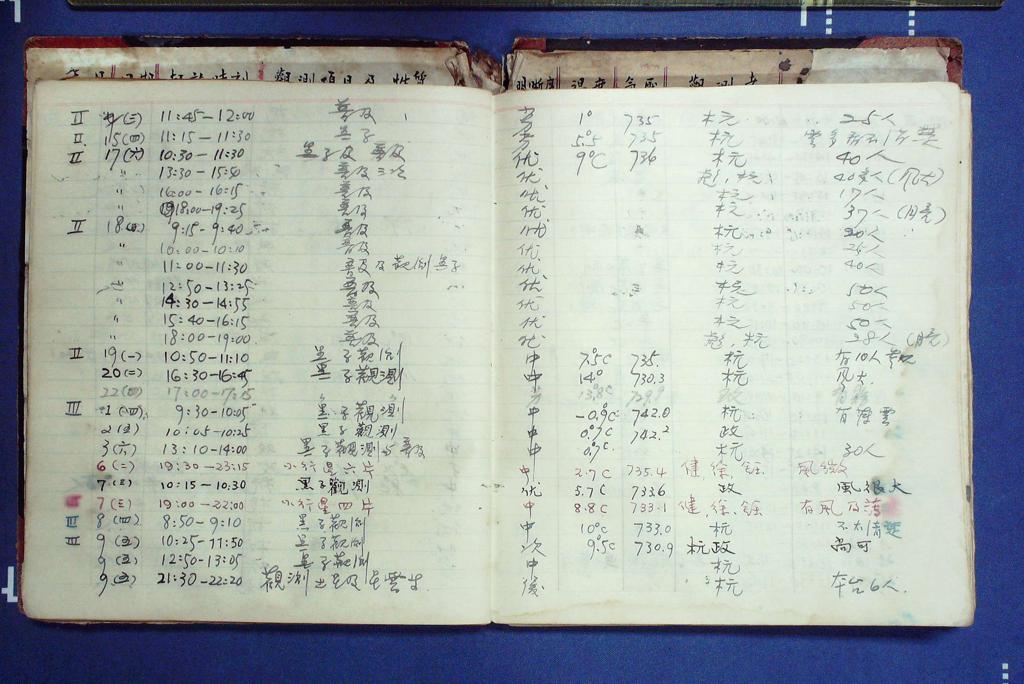 觀測項目及性質 明晰度 温度 氣压 觀測者
II (三) 11:45-12:00 普及 劣 1° 735 杭 25人
II 15(四) 11:15-11:30 黑子 劣 5.5 735 杭
II 17(六) 10:30-11:30 黑子及普及 优 9°C 736 杭 40人
" 13:30-15:50 普及三次 优 彪,杭 (风大)
" 16:00-16:15 普及 优 杭 17人
" 18:00-19:25 普及 优 杭 37人 (月亮)
II 18(日) 9:15-9:40 普及 优 杭 20人
" 10:00-10:10 普及 优 杭 25人
" 11:00-11:30 普及及觀測黑子 优 杭 40人
" 12:50-13:25 普及 优 杭 50人
" 14:30-14:55 普及 优 杭 50人
" 15:40-16:15 普及 优 杭 50人
" 18:00-19:00 普及 优 彪,杭 38人 (月亮)
II 19(一) 10:50-11:10 黑子觀測 中 7.5°C 735. 杭 有10人
20(二) 16:30-16:45 黑子觀測 中 14° 730.3 杭 风大.
22(四) 17:00-17:15 劣 13.8°C 729.9 政
III 1(四) 9:30-10:05 黑子觀測 中 -0.9°C 742.0 杭 有薄雲
2(五) 10:05-10:25 黑子觀測 中 0.7°C 742.2 政
3(六) 13:10-14:00 黑子觀測与普及 中 0.7°C 杭 30人
6(二) 19:30-23:15 小行星六片 中 2.7°C 735.4 健,徐, 風微
7(三) 10:15-10:30 黑子觀測 优 5.7C 733.6 政 風很大
7(三) 19:00-22:00 小行星四片 中 8.8C 733.1 健,徐, 有風及
III 8(四) 8:50-9:10 黑子觀測 中 10°C 733.0 杭 不太清楚
III 9(五) 10:25-11:50 黑子觀測 次 9.5°C 730.9 杭政 尚可
9(五) 12:50-13:05 黑子觀測 中 杭
9(五) 21:30-22:20 觀測土星及星雲 優 杭 本台6人.